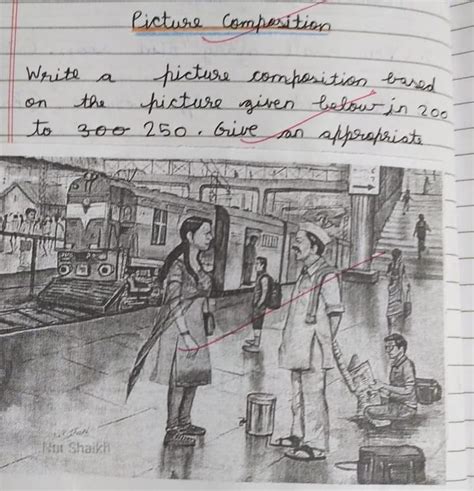 Picture Composition
Write a picture composition based
on the picture given below in 200
to 300 250. Give an appropriate
Nur Shaikh